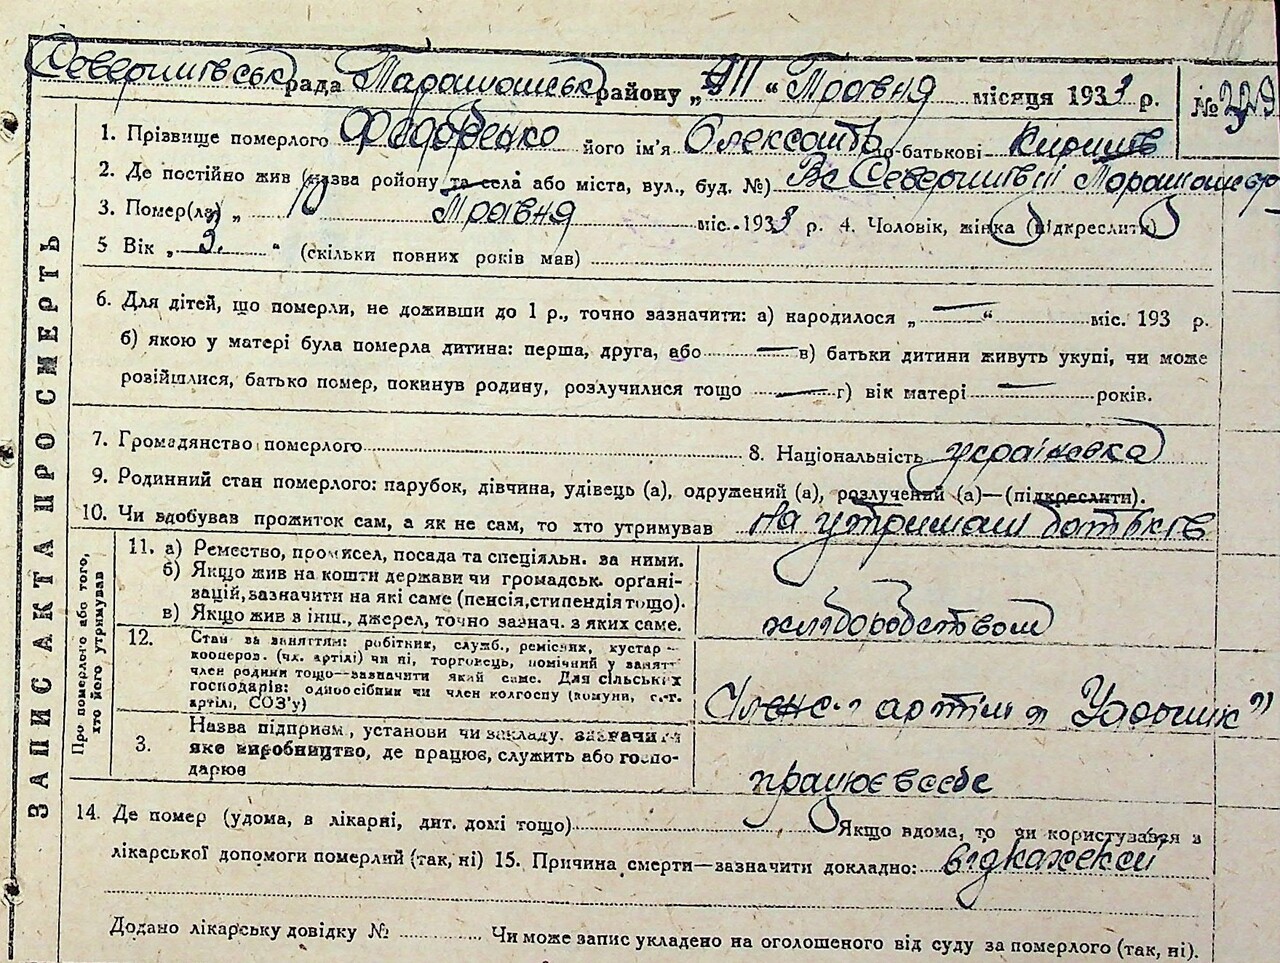 18
рада Таращанськ району „ 11 “ Травня місяця 1933 р. № 229
1. Прізвище померлого Федоренко його ім'я Олександр по-батькові
2. Де постійно жив (назва ройону та села або міста, вул., буд. №)
3. Помер(ла) „ 10 Травня міс. 1933 р. 4. Чоловік, жінка (підкреслити)
5 Вік „ 3. “ (скільки повних років мав)
6. Для дітей, що померли, не доживши до 1 р., точно зазначити: а) народилося „ — “ міс. 193 р.
б) якою у матері була померла дитина: перша, друга, або — в) батьки дитини живуть укупі, чи може
розійшлися, батько помер, покинув родину, розлучилися тощо — г) вік матері — років.
7. Громадянство померлого 8. Національність українська
9. Родинний стан померлого: парубок, дівчина, удівець (а), одружений (а), розлучений (а)—(підкреслити).
10. Чи вдобував прожиток сам, а як не сам, то хто утримував на утриманні батьків
ЗАПИС АКТА ПРО СМЕРТЬ
Про померлого або того, хто його утримував
11. а) Ремество, промисел, посада та спеціяльн. за ними.
б) Якщо жив на кошти держави чи громадськ. орґані-
зацій, зазначити на які саме (пенсія, стипендія тощо).
в) Якщо жив з інш., джерел, точно зазнач. з яких саме.
хліборобством
12. Стан за заняттям: робітник, служб., ремісник, кустар -
кооперов. (чл. артілі) чи ні, торговець, помічний у занятт
член родини тощо—зазначити який саме. Для сільських
господарів: одноосібник чи член колгоспу (комуни, с.-г.
артілі, СОЗ'у)
артіли „
3. Назва підприєм, установи чи закладу, зазначити
яке виробництво, де працює, служить або госпо-
дарює
працює в себе
14. Де помер (удома, в лікарні, дит. домі тощо) Якщо вдома, то чи користувався з
лікарської допомоги померлий (так, ні) 15. Причина смерти—зазначити докладно:
Додано лікарську довідку № Чи може запис укладено на оголошеного від суду за померлого (так, ні).